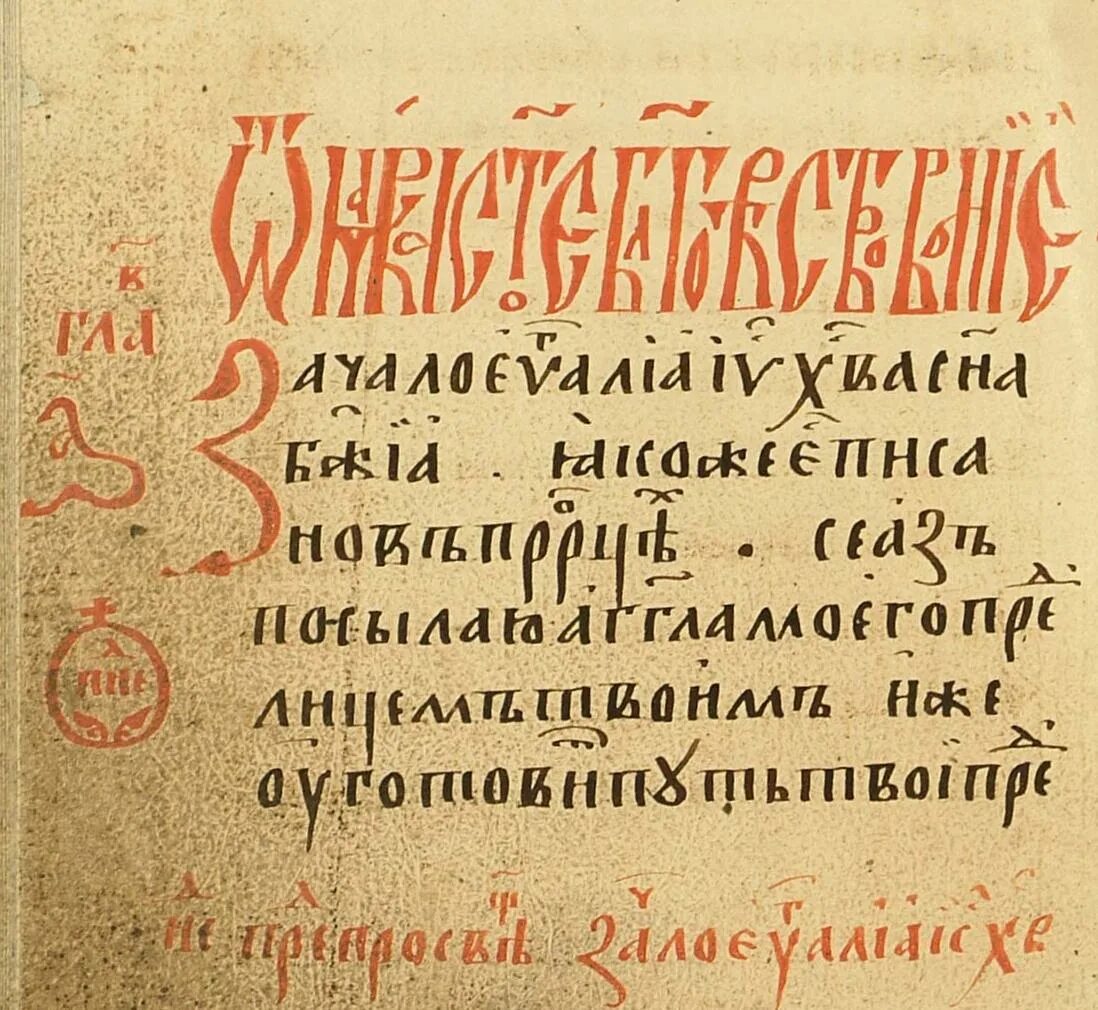 Ѿ марка ст҃ое бл҃говѣствованїе
в҃
гла
а҃
Зачало еѵⷢ҇алїа і҆ѵ҃ х҃ва сн҃а
бж҃їа . ꙗкоже е҆ писа
но въ прⷪ҇рцѣⷯ . се азъ
посылаю аг҃гла моего преⷣ
лицемъ твоимъ иже
оуготовит̾ пꙋть твои преⷣ
неⷣ
неⷣ преⷣ просвѣⷳ҇ заⷱ҇ало еѵⷢ҇алїа іс҃ х҃в